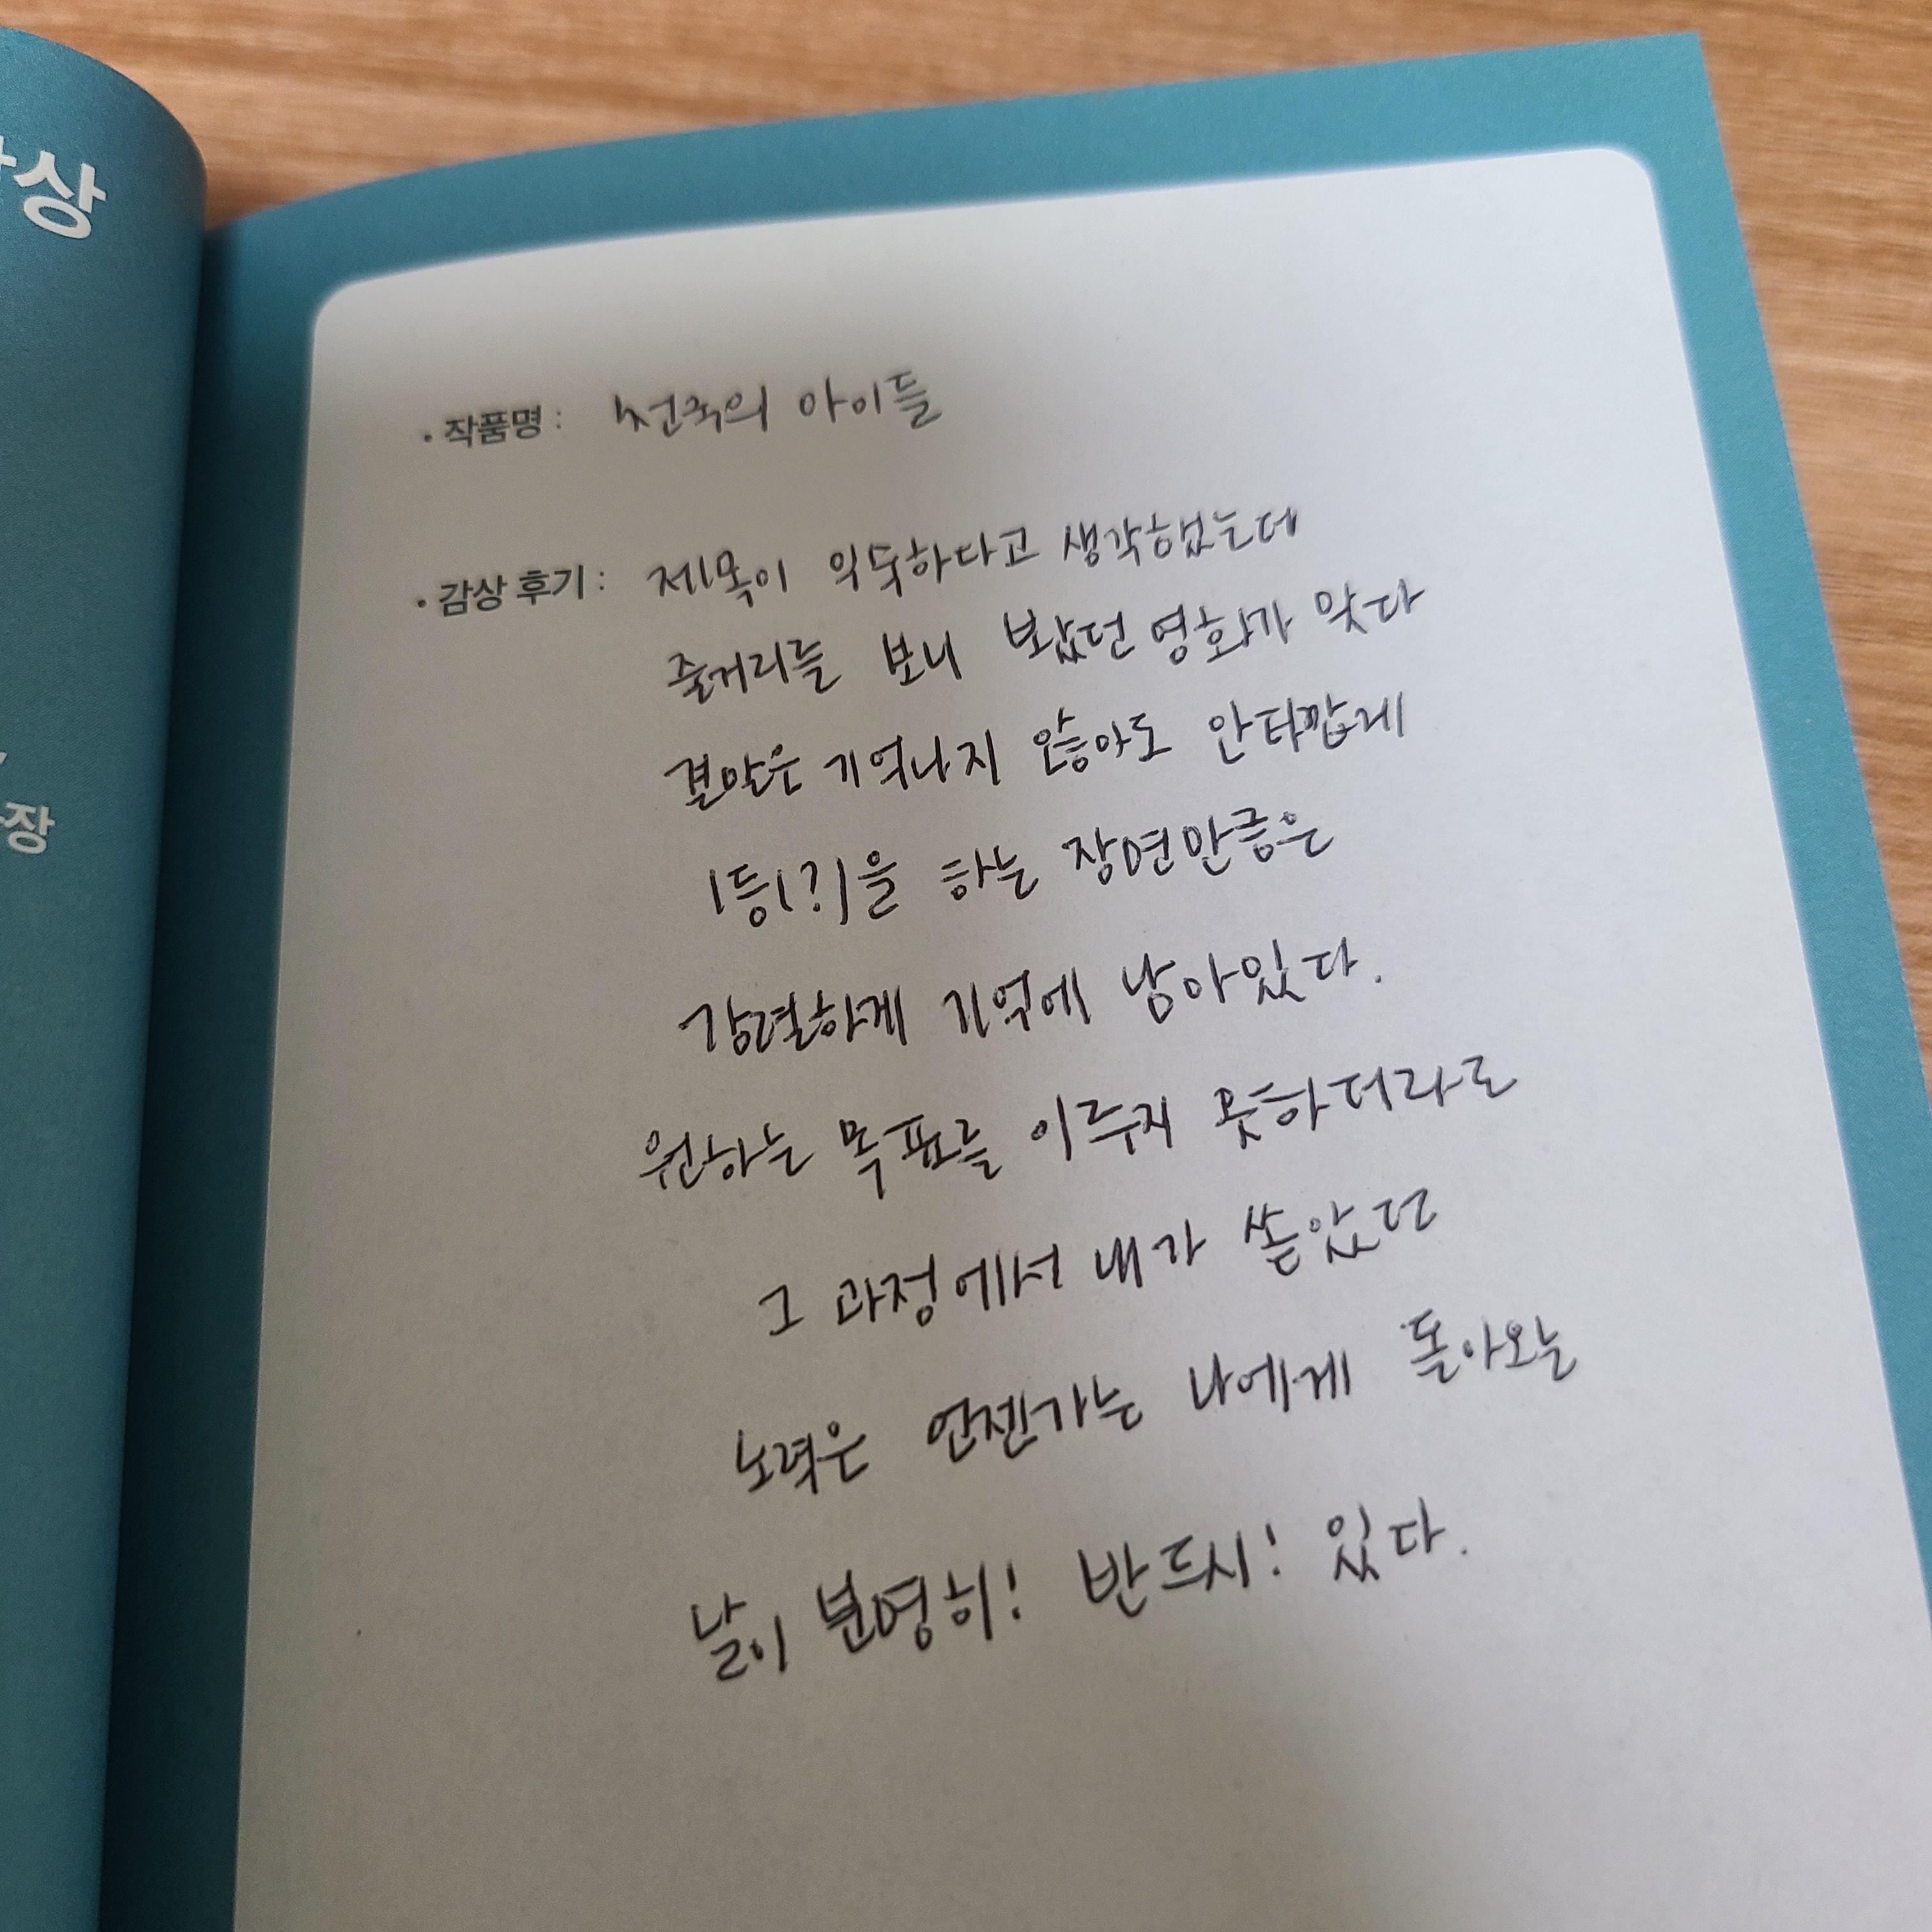 상
장
• 작품명 : 천국의 아이들
• 감상 후기 : 제목이 익숙하다고 생각했는데
줄거리를 보니 봤던 영화가 맞다
결말은 기억나지 않아도 안타깝게
1등(?)을 하는 장면만큼은
강렬하게 기억에 남아있다.
원하는 목표를 이루지 못하더라도
그 과정에서 내가 쏟았던
노력은 언젠가는 나에게 돌아오는
날이 분명히! 반드시! 있다.